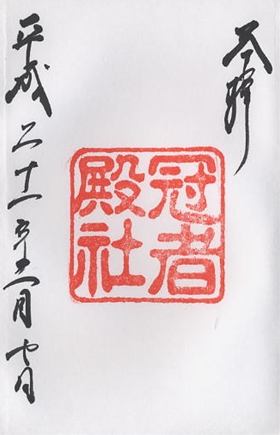 奉拝
冠者
殿社
平成二十一年六月七日